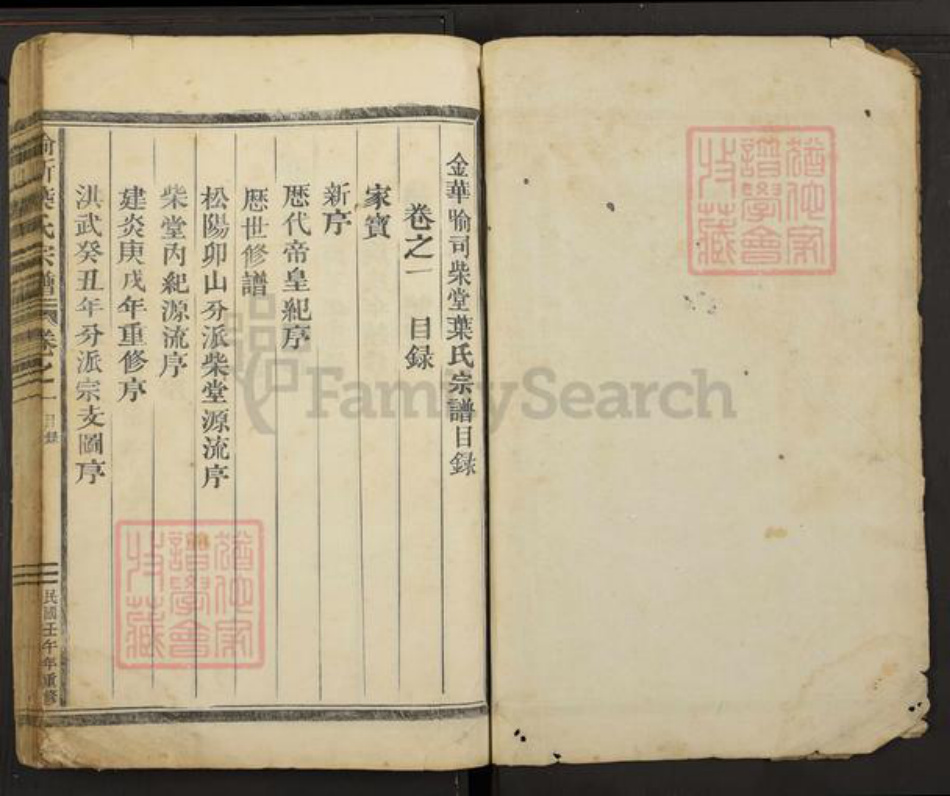 金華喻司柴堂葉氏宗譜目録
卷之一 目録
家寶
新序
歴代帝皇紀序
歴世修譜
松陽卯山分派柴堂源流序
柴堂内紀源流序
建炎庚戌年重修序
洪武癸丑年分派宗支圖序
氏宗譜 卷之一 目録 民國壬午年重修
FamilySearch
譜學會
收藏
譜學會
收藏